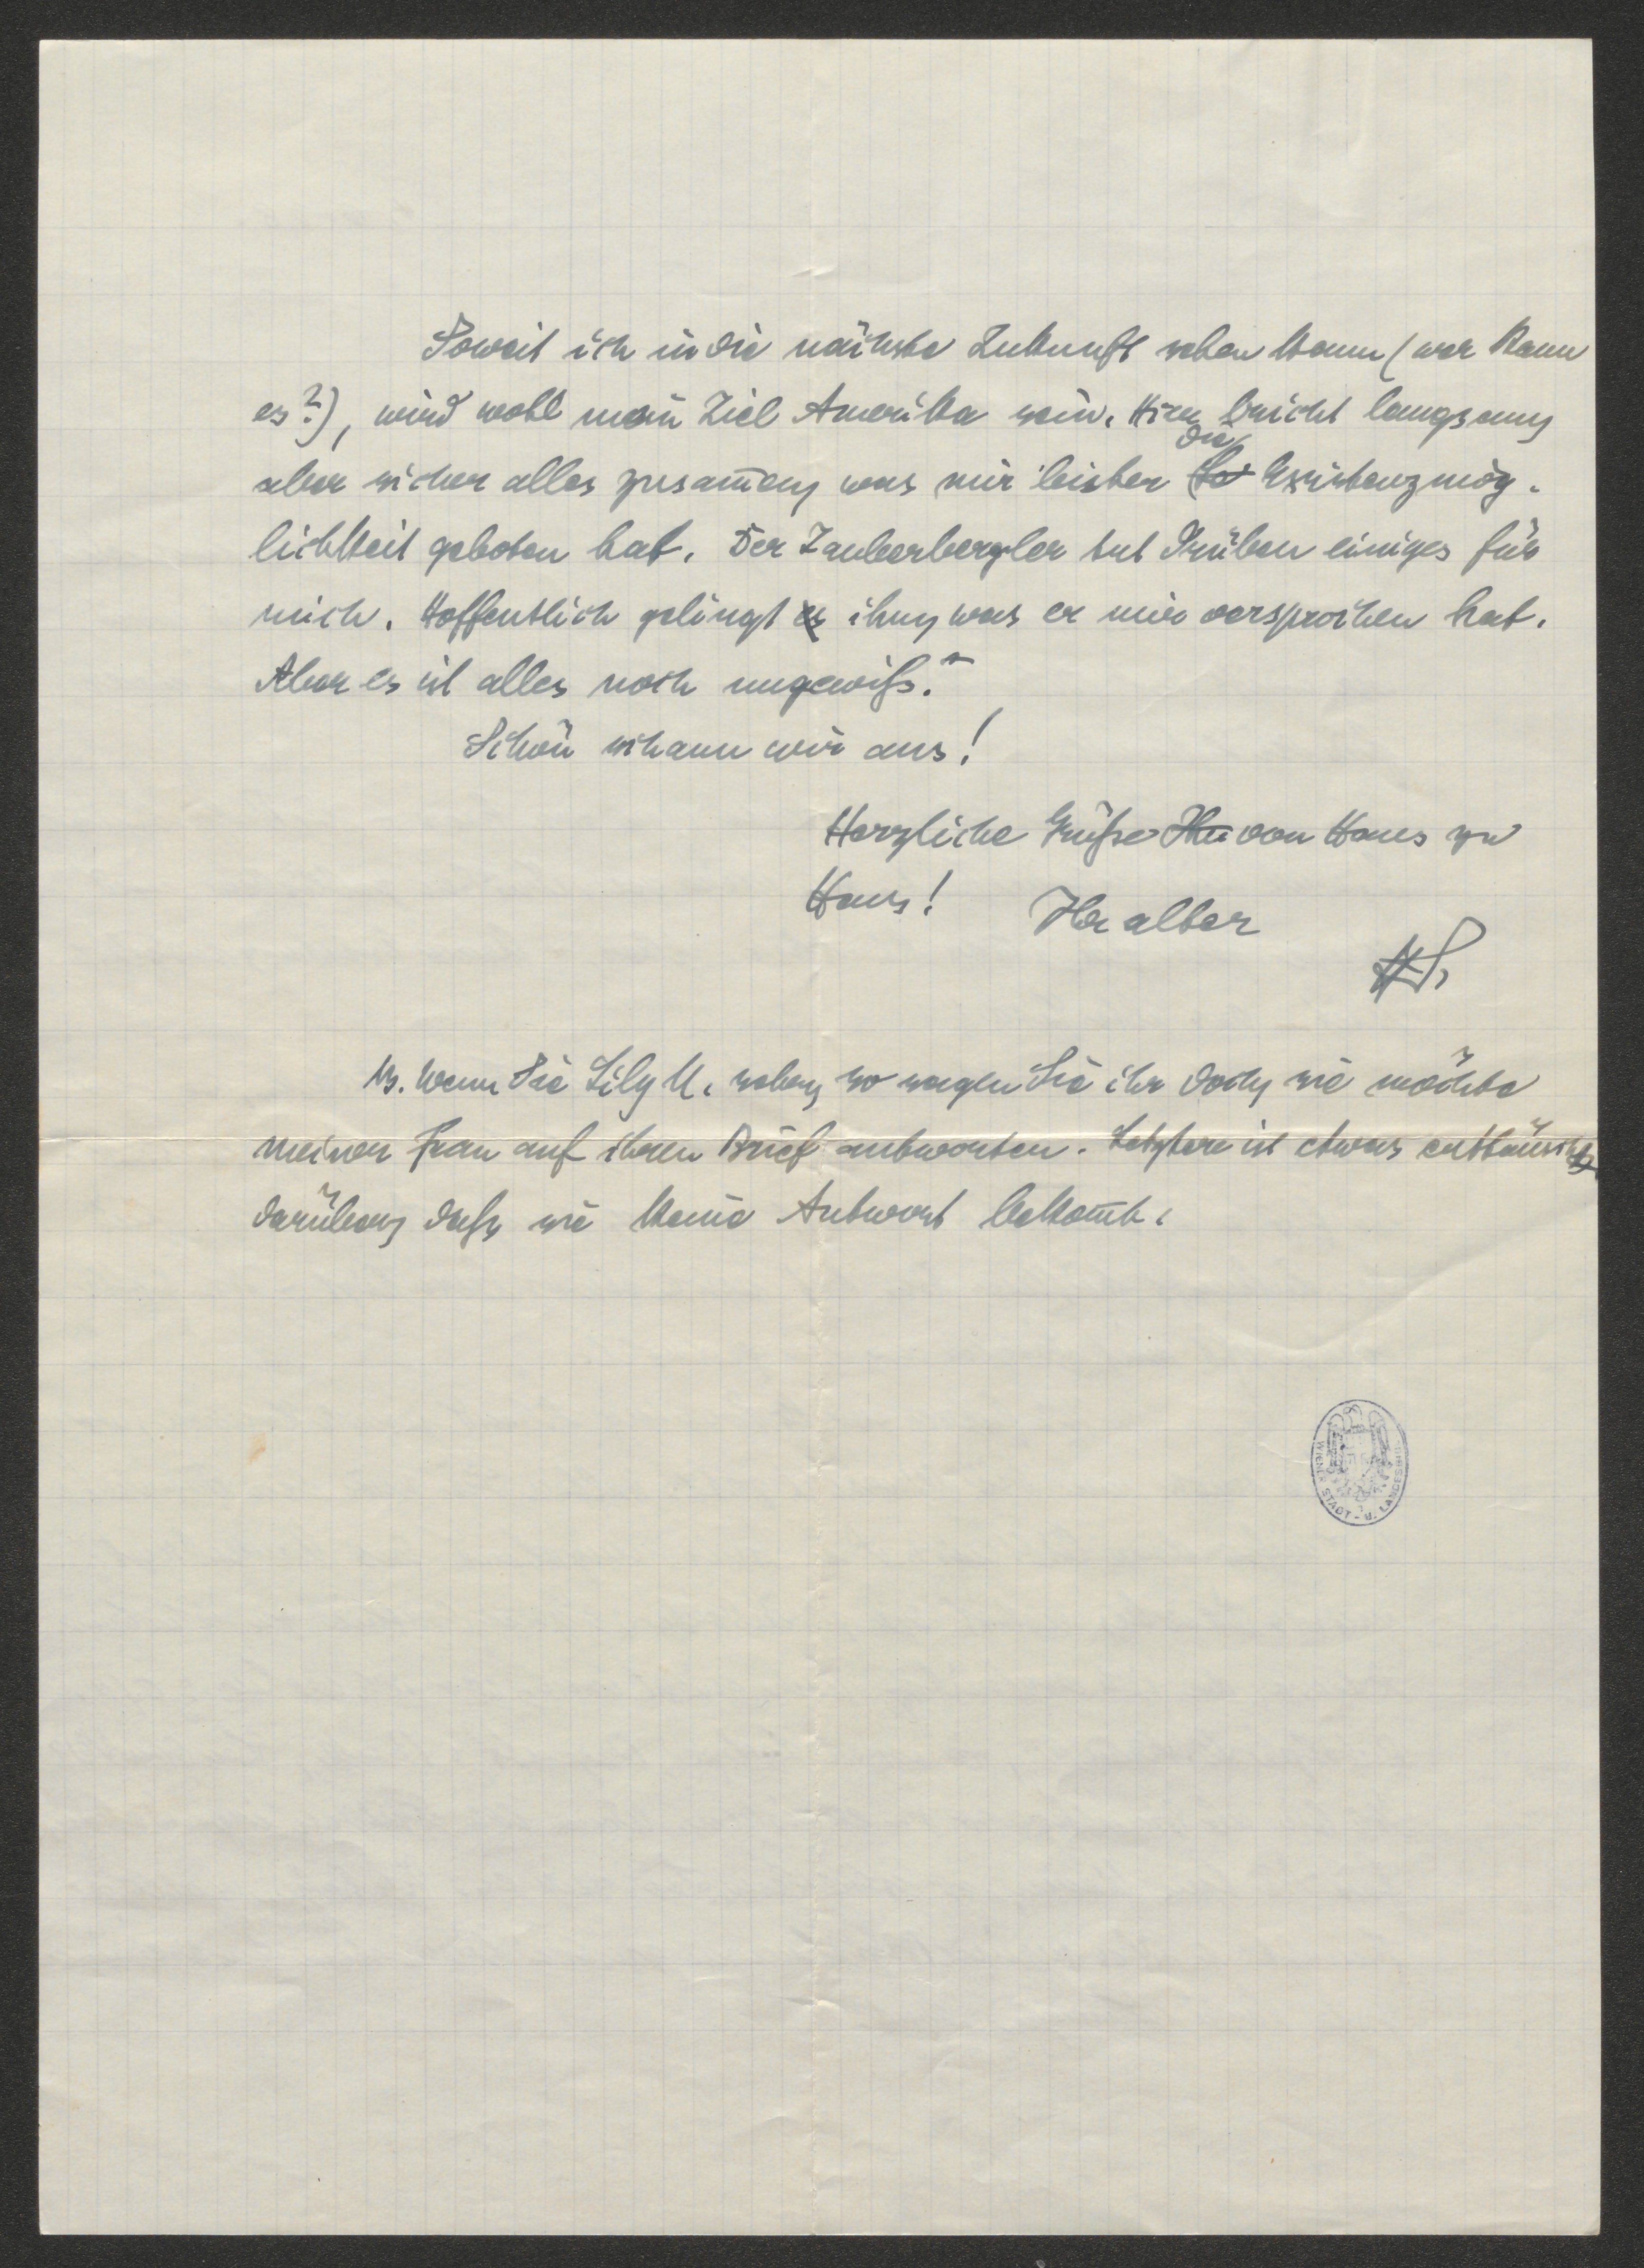 Soweit ich in die nächste Zukunft sehen kann (wer kann
es?), wird wohl mein Ziel Amerika sein. Hier bricht langsam,
aber sicher alles zusam̄en, was mir bisher die Existenzmög-
lichkeit geboten hat. Der Zauberbergler tut drüben einiges für
mich. Hoffentlich gelingt es ihm, was er mir versprochen hat.
Aber es ist alles noch ungewiß.
Schön schaun wir aus!
Herzliche Grüße von Haus zu
Haus! Ihr alter
HS.
NB. Wenn Sie Lily U. sehen, so sagen Sie ihr doch, sie möchte
meiner Frau auf ihren Brief antworten. Letztere ist etwas enttäuscht
darüber, daß sie keine Antwort bekom̄t.
WIENER STADT- U. LANDESBIBL.